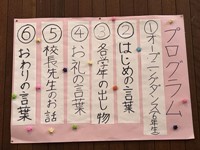 プログラム
①オープニングダンス(6年生)
②はじめの言葉
③各学年の出し物
④お礼の言葉
⑤校長先生のお話
⑥おわりの言葉